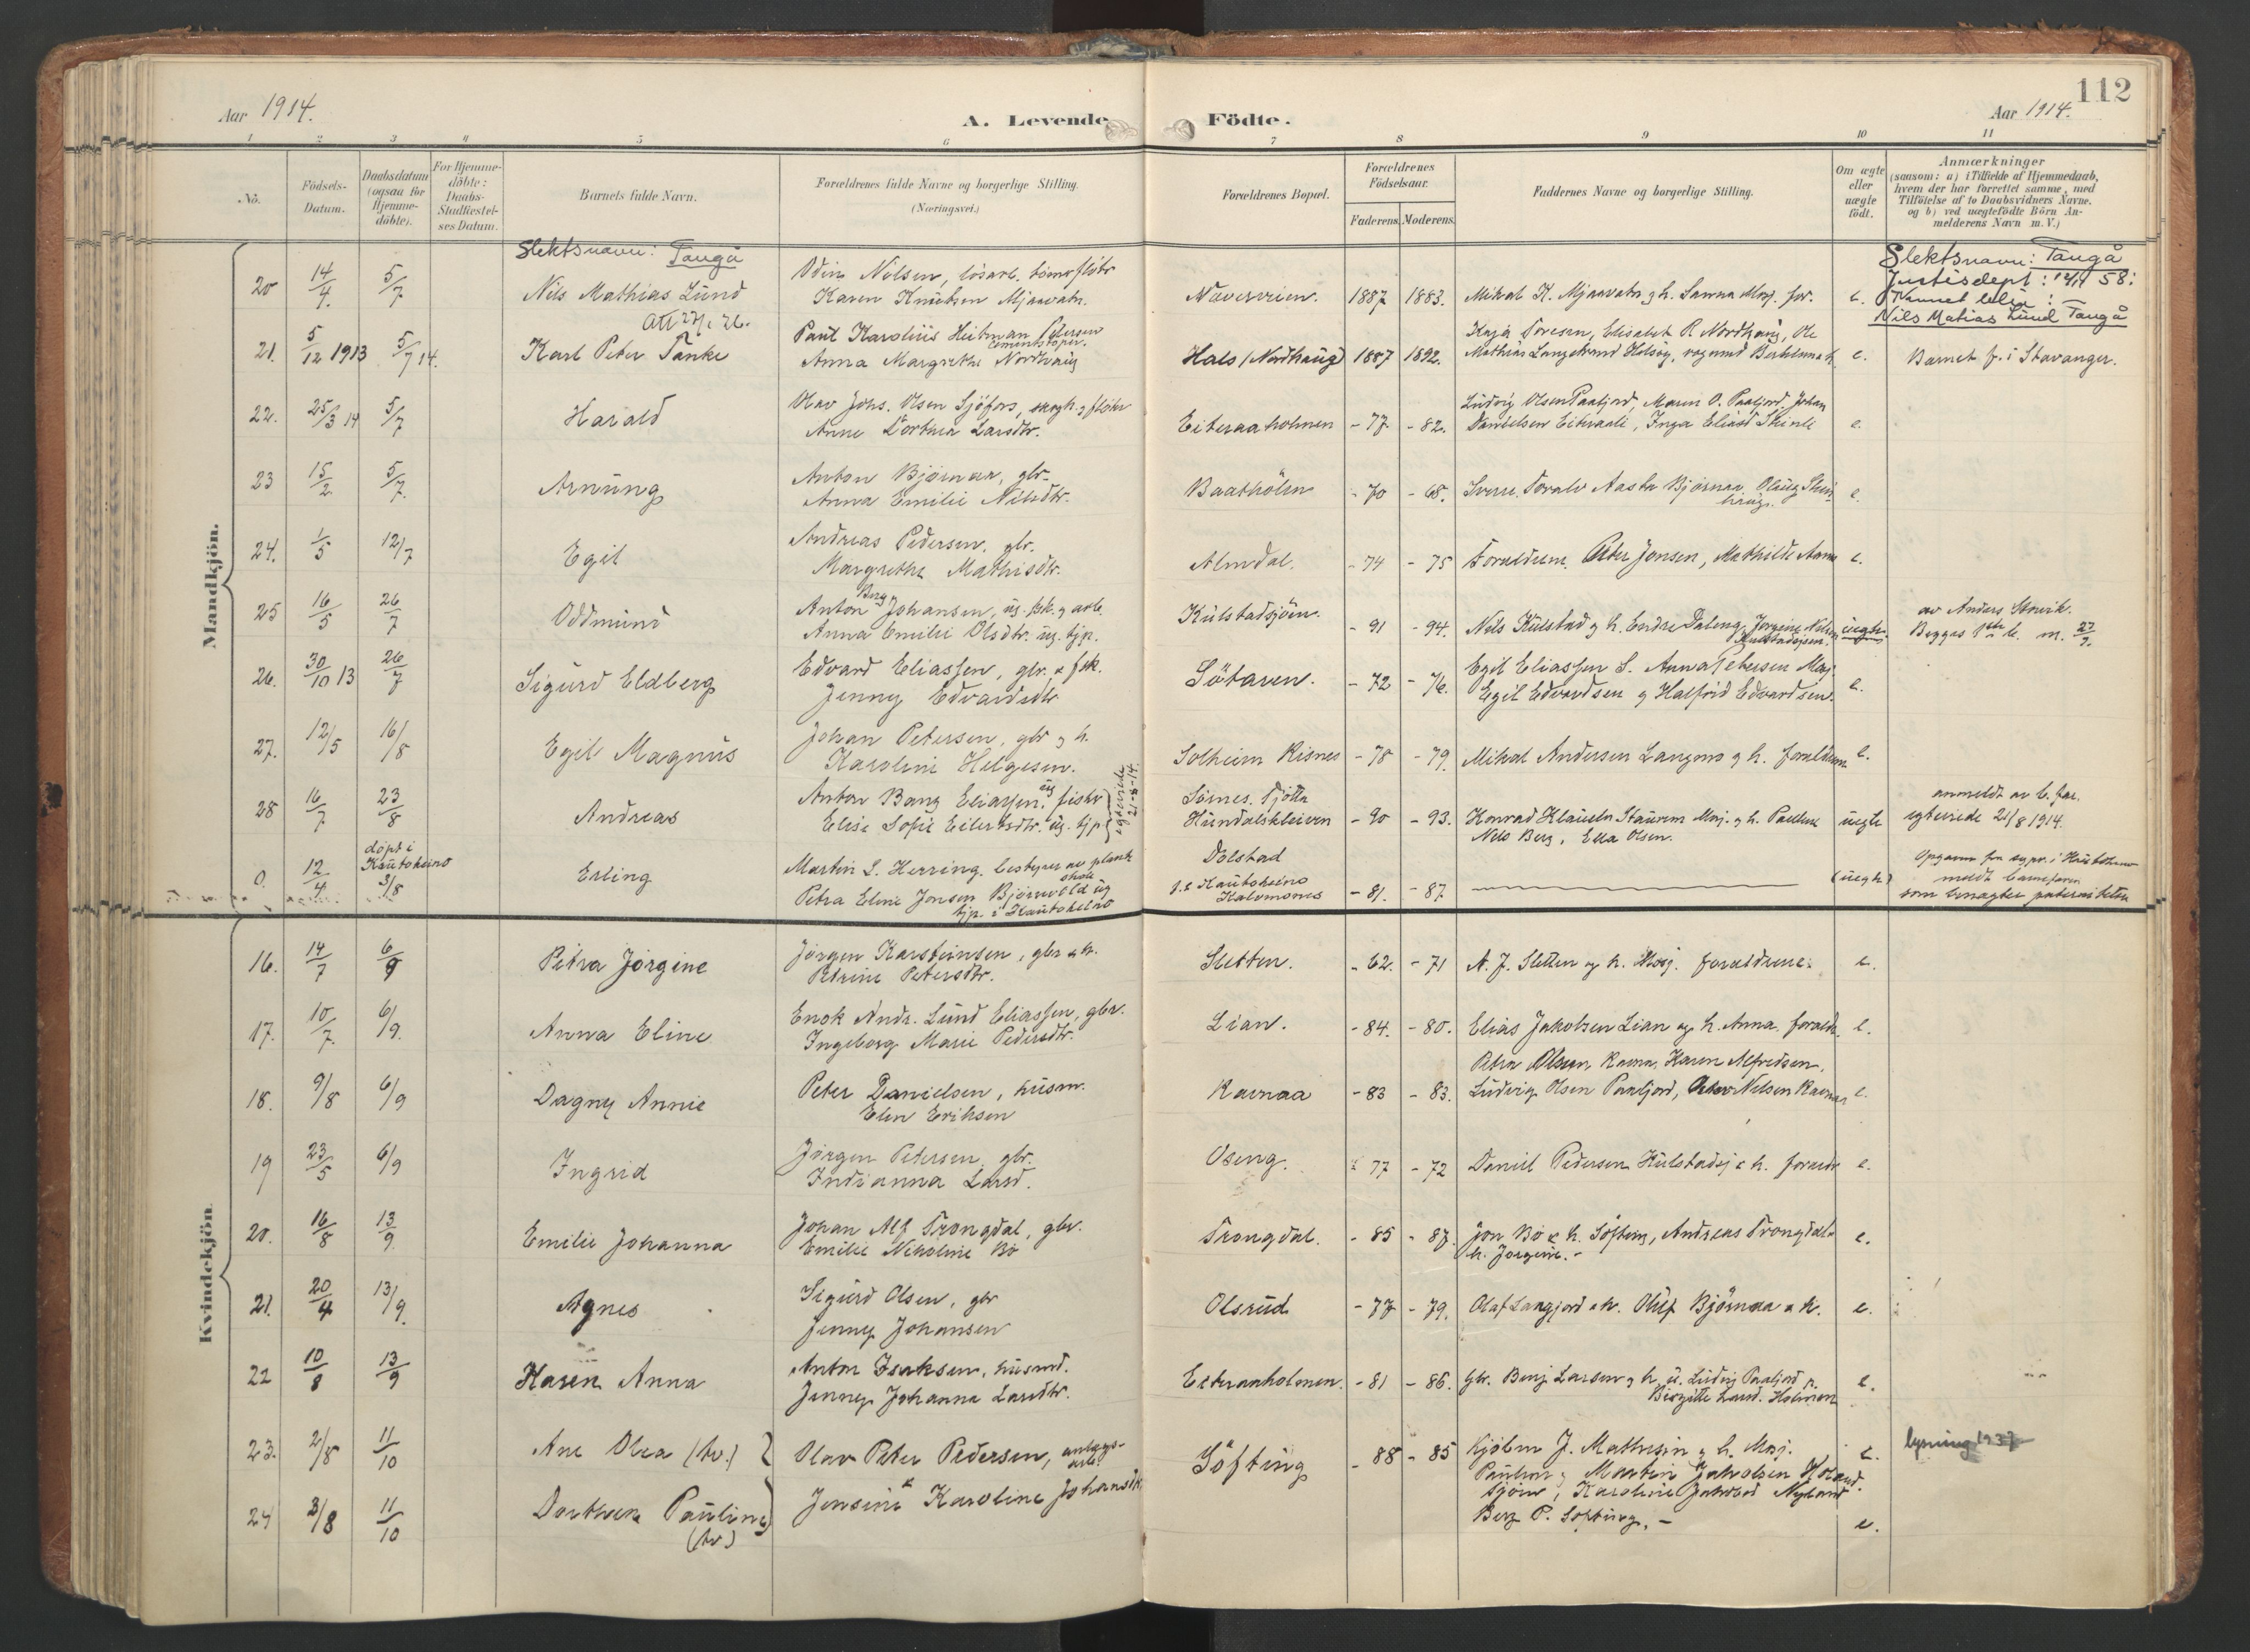 112
Aar 1914.
A. Levende
Födte.
Aar 1914.
1 2 3 4 5 6 7 8 9 10 11
No.
Födsels-Datum.
Daabsdatum (ogsaa for Hjemme-döbte).
For Hjemme-döbte: Daabs-Stadfæstel-ses Datum.
Barnets fulde Navn.
Forældrenes fulde Navne og borgerlige Stilling.
(Næringsvei.)
Forældrenes Bopæl.
Forældrenes Födselsaar.
Faderens. Moderens.
Faddernes Navne og borgerlige Stilling.
Om ægte eller uægte födt.
Anmærkninger
(saasom: a) i Tilfælde af Hjemmedaab, hvem der har forrettet samme, med Tilföielse af to Daabsvidners Navne. og b) ved uægtefödte Börn An-melderens Navn m. V.)
Mandkjön.
Slektsnavn: Tangå
20 14/4. 5/7 Nils Mathias Lund
Odin Nilsen, lösarb. tömrflötr
Karen Knutsen Mjaavatn.
1887 1883.
e.
Slektsnavn: Tangå
Justisdept:
Nils Matias Lund Tangå
21. 5/12 1913 5/7 14. Karl Peter Tanke
Paul Karolius Heitman Petersen
Anna Margrethe Nordhaug
Hals (Nordhaug) 1887 1892.
Kaja Toresen, Elisabet R. Nordhaug, Ole
e. Barnet f. i Stavanger.
22. 25/3 14 5/7 Harald
Olav Johs. Olsen Sjöfors,
Anne Dorthea Larsdtr.
Eiteraaholmen - 77 - 82.
Ludvig Olsen Paatjord, Maren O. Paatjord, Johan
Danielsen Eiteraali, Inga Eliasd
e.
23 15/2 5/7 Arnung
Anton Björnaa, gbr.
Anna Emilie Nilsdtr.
Baatholm - 70 - 68.
e.
24. 1/5 12/7 Egil
Andreas Pedersen, gbr.
Margrethe Mathisdtr.
Almdal. - 74 - 75
Forældrene. Peter Jonsen, Mathilde Anna
e.
25 16/5 26/7 Oddmund
Berg
Anton Johansen,
Anna Emilie Olsdtr. ug. tjp.
Kulstadsjöen. - 91 - 94.
Nils Kulstad og h. Endre Daleng, Jorgine Nilsen
Kulstadsjöen.
uegte.
av Anders Storvik.
Begges 1ste b. m. 27/9.
26. 30/10 13 26/7 Sigurd Eldberg
Edvard Eliassen, gbr. & fsk.
Jenny Edvardsdtr
Sötaren. - 72 - 76.
Egil Eliassen S. Anna Petersen Maj.
Egil Edvardsen og Halfrid Edvardsen.
e.
27. 12/5 16/8 Egil Magnus
Johan Petersen, gbr og h.
Karoline Helgesen.
Solheim Risnes - 78 - 79.
Mikal Andersen Langmo og h. forældrene
e.
28 16/7 23/8 Andreas
Anton Bang Eliassen, ug fisker
Elise Sofie Eilertsdtr. ug. tjp.
egteviede 21-8-14.
Sörnes. Tjötta
Hundalskleiven - 90 - 93.
Konrad Klausen Stauren Maj. og h. Pauline
Nils Berg, Ella Olsen.
uegte
anmeldt av b. far.
egteviede 21/8 1914.
0. 12/4 döpt i Kautokeino 3/8 Erling
Martin L. Herring, bestyrer av
Petra Eline Jonsen Björnvold ug
tjp. i Kautokeino
Dolstad
Kautokeino - 81. - 87
(uegte)
Kvindekjön.
16. 14/7 6/9 Petra Jörgine
Jörgen Karsteinsen, gbr & h.
Petrine Petersdtr.
Sletten. - 62. - 71
A. J. Sletten og h. Maj. forældrene.
e.
17. 10/7. 6/9. Anna Eline
Enok Andr. Lund Eliassen, gbr.
Ingeborg Marie Pedersdtr.
Lian. - 84. - 80.
Elias Jakobsen Lian og h. Anna. forældr.
e.
18. 9/8 6/9 Dagny Annie
Peter Danielsen, husm.
Elen Eriksen
Ravnaa - 83 - 83.
Petra Olsen Ravnaa, Karen Alfredsen,
Ludvig Olsen Paatjord, Peter Nilsen Ravnaa
e.
19 23/5 6/9 Ingrid
Jörgen Petersen, gbr.
Indianna Larsd.
Oseng. - 77 - 72
Daniel Pedersen Kulstadsj & h. forældr
e.
20. 16/8 13/9. Emilie Johanna
Johan Alf Trongdal, gbr.
Emilie Nikoline Bö
Trongdal. - 85 - 87.
Jon Bö & h. Söfting, Andreas Trongdal &
h. Jorgine. -
e.
21. 20/4 13/9. Agnes
Sigurd Olsen, gbr
Jenny Johansen
Olsrud - 77 - 79.
Olaf Langjord & h. Oluf Björnaa & h.
e.
22 10/8 13/9 Karen Anna
Anton Isaksen, husmd.
Jenny Johanna Larsdtr.
Eiteraaholmen. - 81 - 86.
Gbr. Benj Larsen og h. u. Ludvig Paatjord p.
Birgitte Larsd. Holmen
e.
23. 2/8 11/10 Ane Olea (tv.)
Olav Peter Pedersen, anlegs-arb.
Jensine Karoline Johansdtr
Söfting - 88 - 85
Kjöbm J. Mathisen og h. Maj.
Martin Jakobsen
Karoline Jakobsd Nyland
Berg P. Söfting. -
e.
lysning 1937
24 3/8 11/10 Dorthea Pauline (tv.)
e.